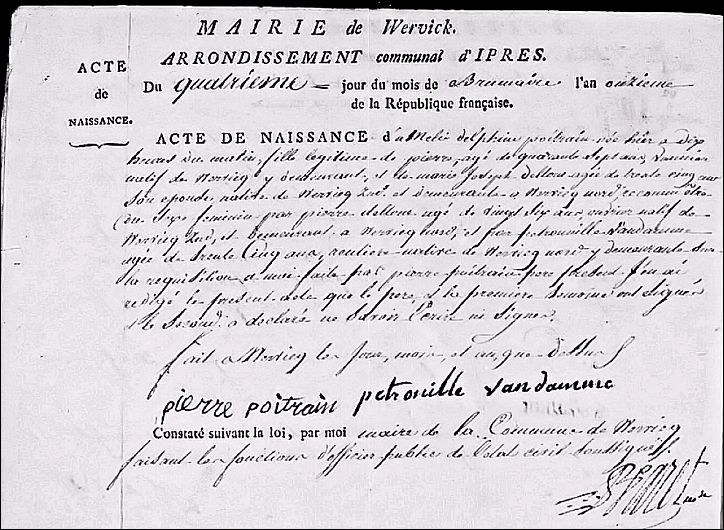 MAIRIE de Wervick.
ARRONDISSEMENT communal d'IPRES.
ACTE
de
NAISSANCE.
Du quatrieme jour du mois de Brumaire l'an onzieme
de la République française.
ACTE DE NAISSANCE d'amelie delphine poitrain née hier a dix
heures du matin, fille legitime de pierre, agé de quarante sept ans,
natif de Wervicq y demeurant, et de marie Joseph dellone agée de trente cinq ans
son epouse native de Wervicq Sud, et demeurante a Wervicq nord, reconnu être
du Sexe feminin par pierre dellone agé de vingt six ans, ouvrier natif de
Wervicq Sud, et demeurant a Wervicq nord, et par petronille Vandamme
agée de trente cinq ans, native de Wervicq nord y demeurante Sur
la requisition a moi faite par pierre poitrain pere present J'en ai
redigé le present acte que le pere, et la premiere temoine ont Signés
et le Second a declaré ne Savoir Ecrire ni Signer,
fait a Wervicq les Jour, mois, et an, que dessus
pierre poitrain petronille vandamme
Constaté suivant la loi, par moi maire de la Commune de Wervicq
faisant les fonctions d'officier public de l'etat civil Soussigné